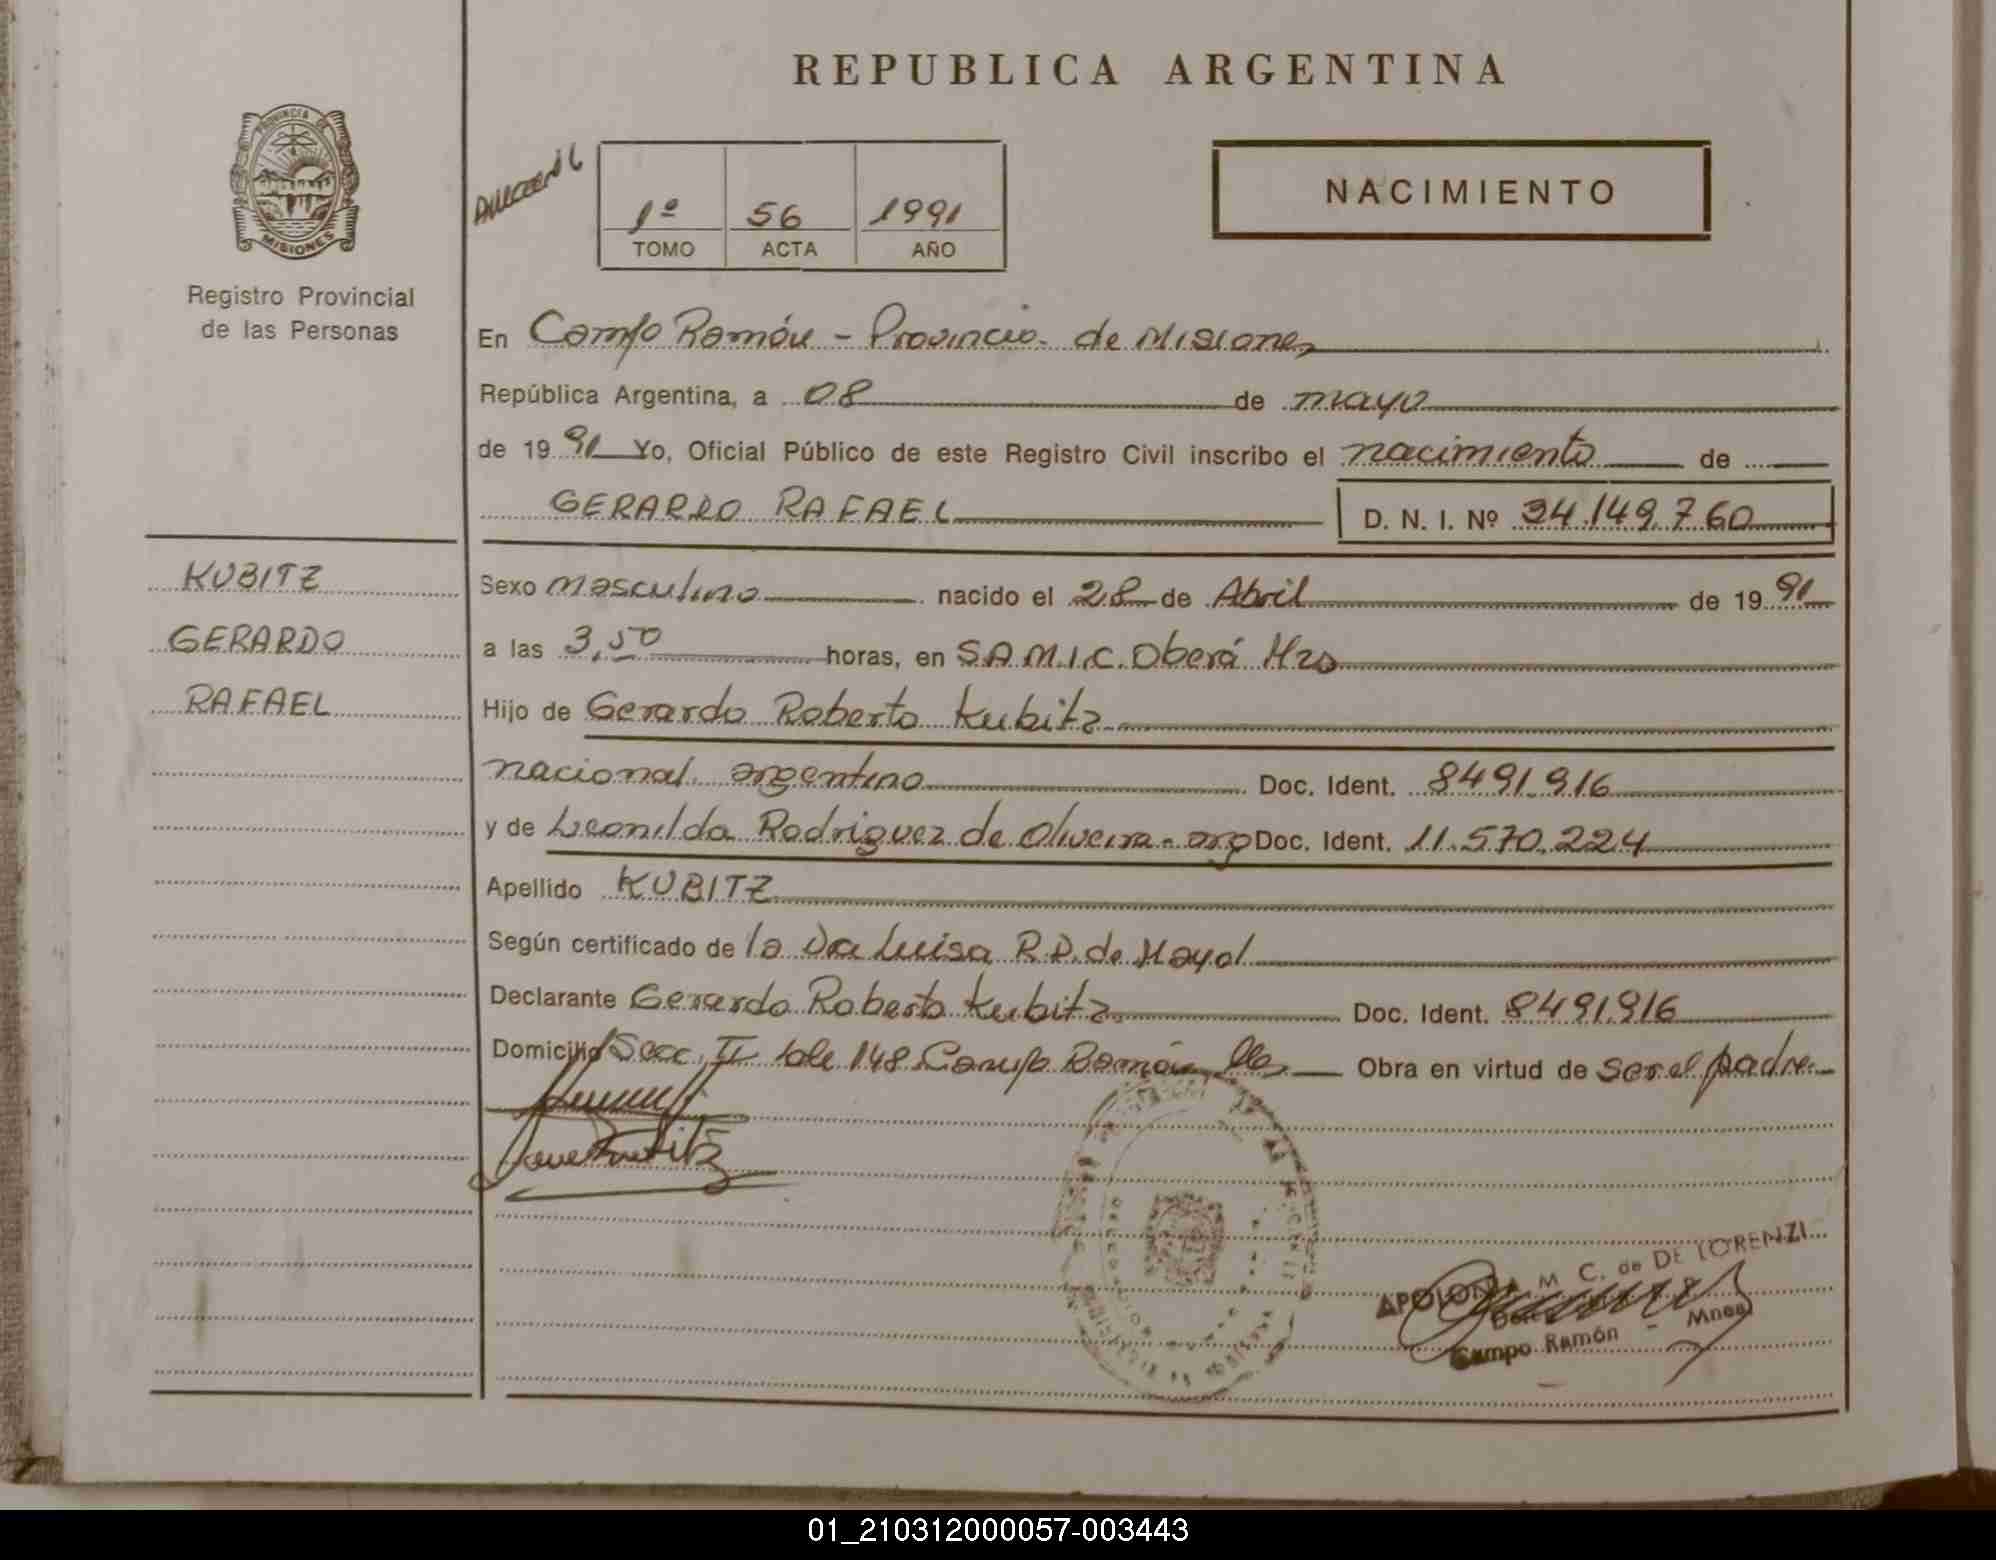 REPUBLICA ARGENTINA
PROVINCIA DE
MISIONES
Registro Provincial
de las Personas
1º 56 1991
TOMO ACTA AÑO
NACIMIENTO
En Campo Ramón - Provincia de Misiones
República Argentina, a 08 de mayo
de 1991 Yo, Oficial Público de este Registro Civil inscribo el nacimiento de
GERARDO RAFAEL D. N. I. Nº 34.149.760
KUBITZ
GERARDO
RAFAEL
Sexo masculino nacido el 28 de Abril de 1991
a las 3,50 horas, en S.A.M.I.C. Oberá Mns
Hijo de Gerardo Roberto Kubitz
nacional. argentino Doc. Ident. 8491.916
y de Leonilda Rodriguez de Oliveira - arg Doc. Ident. 11.570.224
Apellido KUBITZ
Según certificado de la Dra Luisa R.D. de Mayol
Declarante Gerardo Roberto Kubitz Doc. Ident. 8491.916
Domicilio Secc. II Lote 148 Campo Ramón Obra en virtud de ser el padre
APOLONIA M. C. de DE LORENZI
Campo Ramón - Mnes
01_210312000057-003443